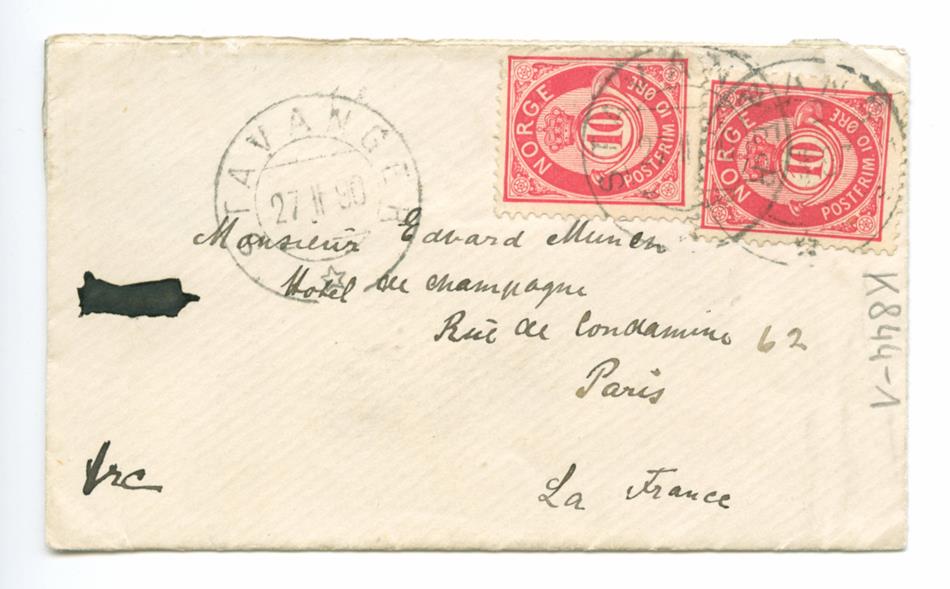 NORGE 10 POSTFRIM 10 ØRE
NORGE 10 POSTFRIM 10 ØRE
STAVANGER
27 II 90
Monsieur Edvard Munch
Hotel de champagne
Rue de Condamine 62
Paris
La France
frc
K844-1